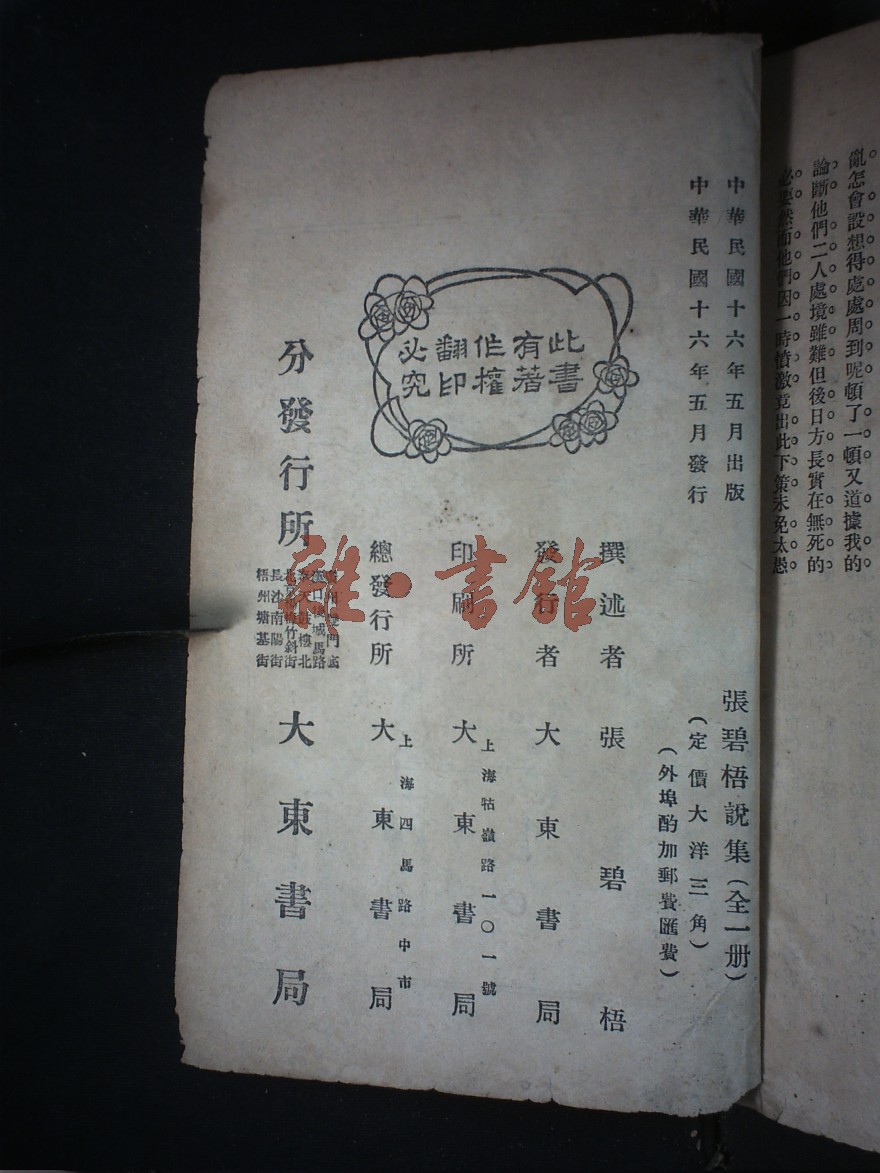 亂怎會設想得處處周到呢頓了一頓又道據我的
論斷他們二人處境雖難但後日方長實在無死的
必要然而他們因一時憤激竟出此下策未免太愚
中華民國十六年五月出版
中華民國十六年五月發行
張碧梧說集(全一册)
(定價大洋三角)
(外埠酌加郵費匯費)
此書
有著
作權
翻印
必究
撰述者 張碧梧
發行者 大東書局
印刷所 上海牯嶺路一〇一號 大東書局
總發行所 上海四馬路中市 大東書局
分發行所
門底
城馬路
奉天鼓樓北
竹斜街
長沙南陽街
梧州塘基街
大東書局
雜·書館